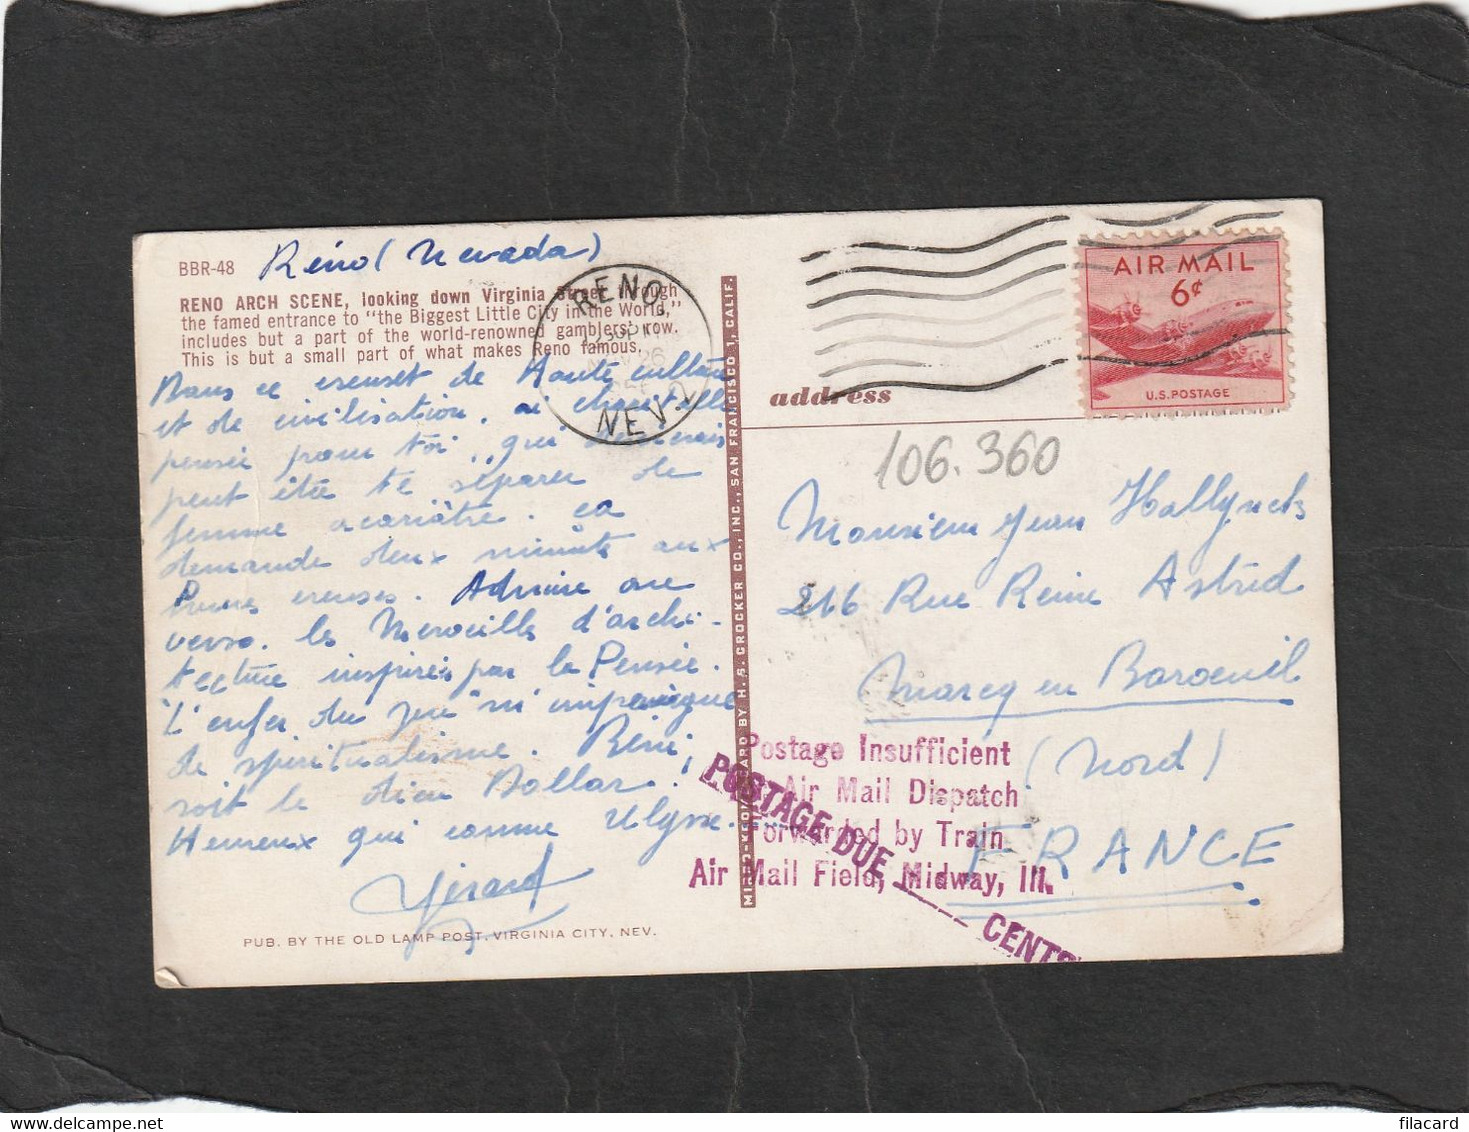 BBR-48
Réno (Nevada)
RENO ARCH SCENE, looking down Virginia Street through
the famed entrance to "the Biggest Little City in the World,"
includes but a part of the world-renowned gamblers' row.
This is but a small part of what makes Reno famous.
Dans ce creuset de Haute culture
et de civilisation, ai
pensée pour toi, qui
peut être te séparer de
femme acariâtre. ca
demande deux minute aux
creuses. Admire au
verso. les Merveilles d'archi-
tecture inspirées par la Pensée.
"L'enfer du jeu" ni
de spiritualisme. Béni
soit le dieu Dollar!
Heureux qui comme Ulysse.
Gérard
PUB. BY THE OLD LAMP POST, VIRGINIA CITY, NEV.
RENO
NEV. 2
26
MADE BY H. S. CROCKER CO., INC., SAN FRANCISCO 1, CALIF.
AIR MAIL
6¢
U.S. POSTAGE
address
106.360
Monsieur Jean Hallynck
266 Rue Reine Astrid
Marcq en Baroeuil
(Nord)
FRANCE
Postage Insufficient
Air Mail Dispatch
Forwarded by Train
Air Mail Field, Midway, Ill.
POSTAGE DUE CENTS
filacard.delcampe.net